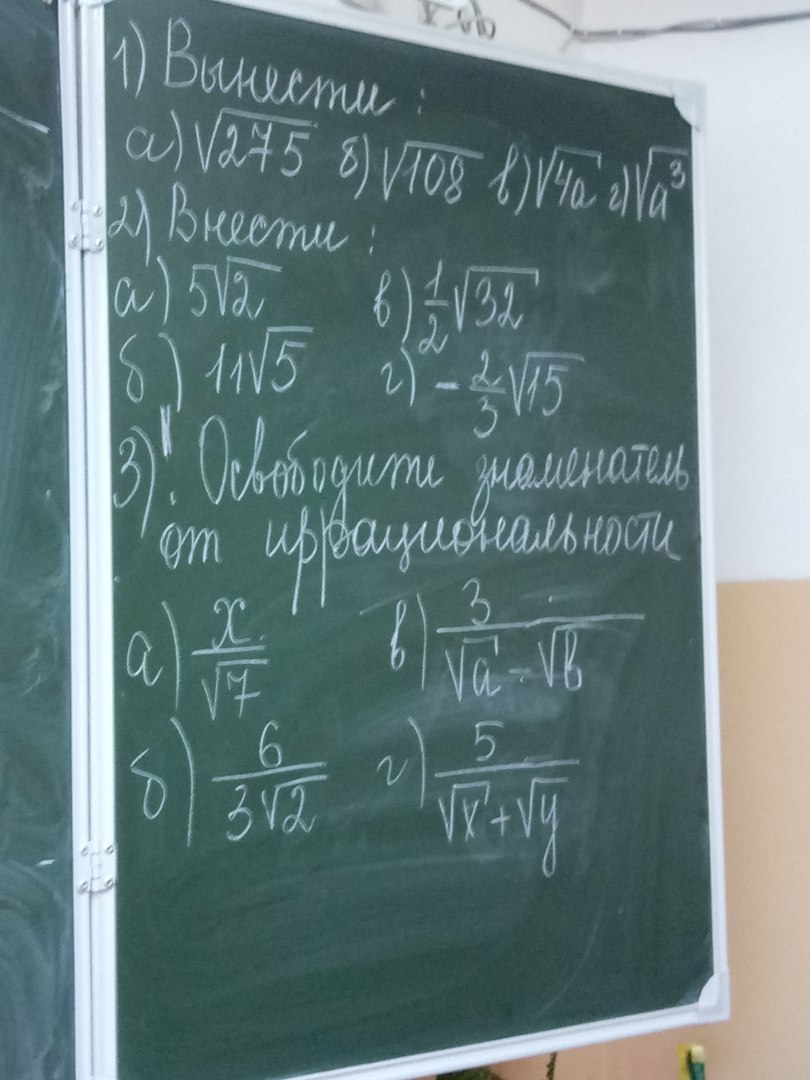 1) Вынести :
а) √275 б) √108 в) √4a г) √a³
2) Внести :
а) 5√2 в) 1/2 √32
б) 11√5 г) - 2/3 √15
3) Освободите знаменатель
от иррациональности
а) x/√7 в) 3/(√a - √b)
б) 6/(3√2) г) 5/(√x + √y)